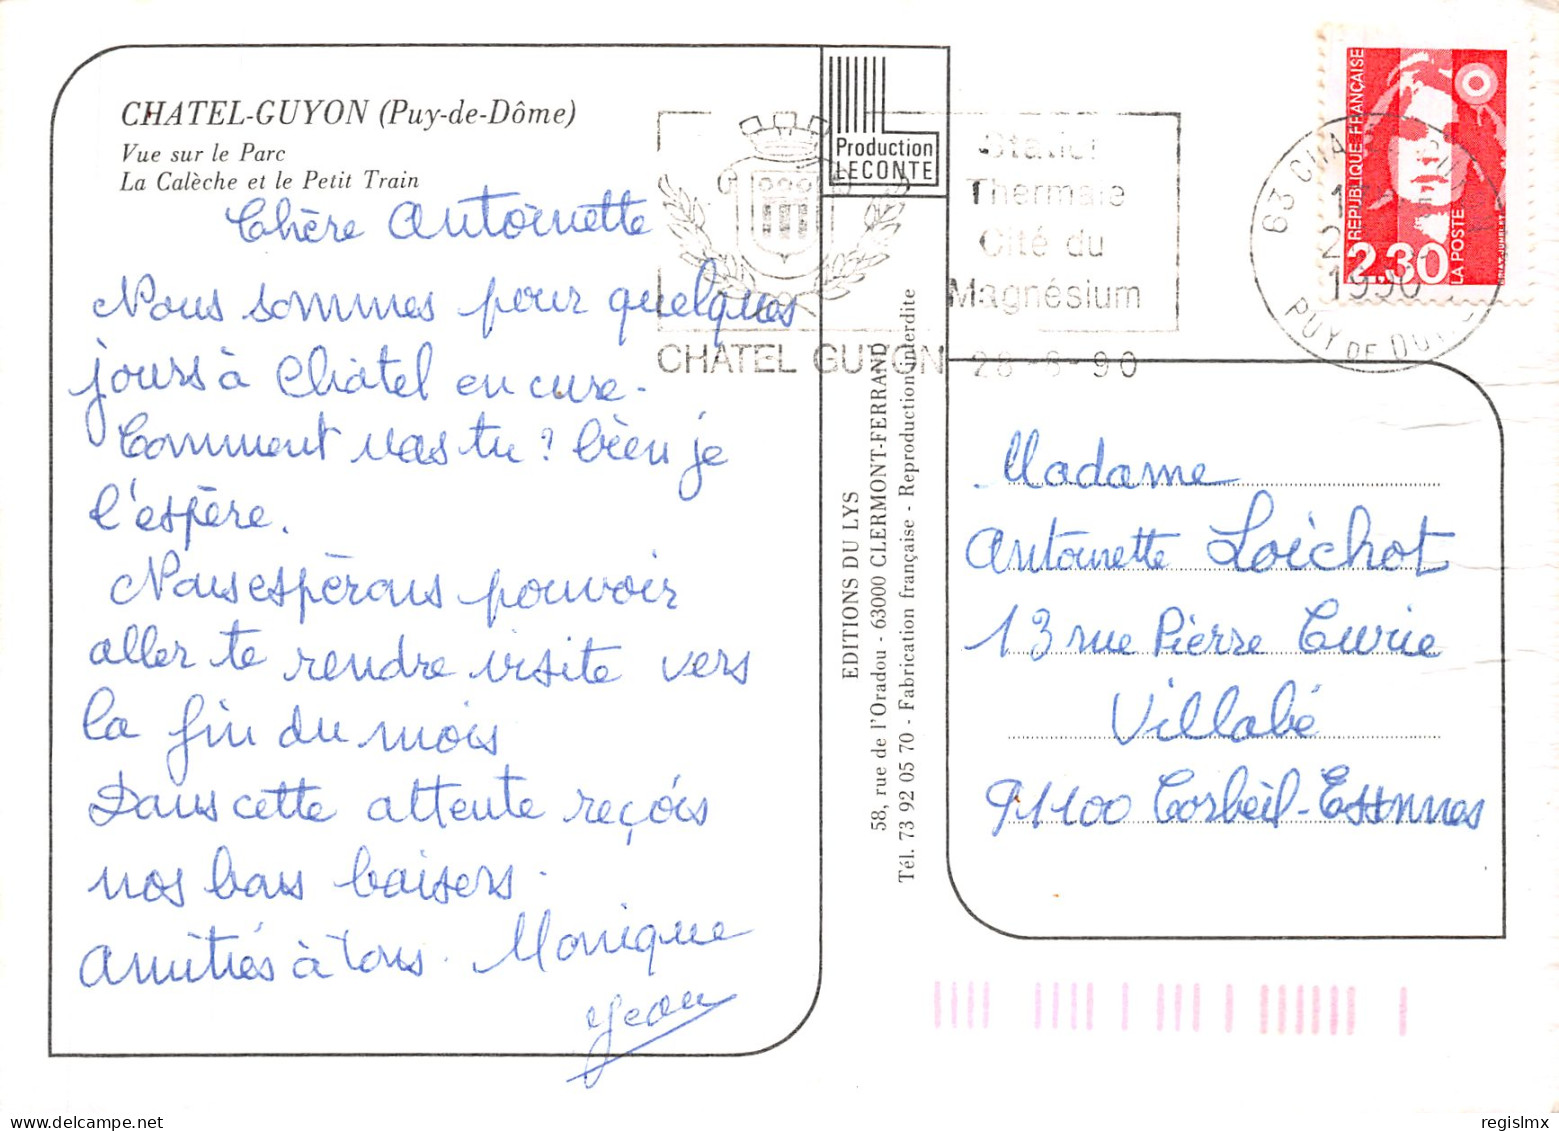 CHATEL-GUYON (Puy-de-Dôme)
Vue sur le Parc
La Calèche et le Petit Train
Chère Antoinette
Nous sommes pour quelques
jours à Châtel en cure.
Comment vas tu ? bien je
l'espère.
Nous espérons pouvoir
aller te rendre visite vers
la fin du mois
Dans cette attente reçois
nos bons baisers.
Amitiés à tous. Monique
Jean
Production
LECONTE
Station
Thermale
Cité du
Magnésium
CHATEL GUYON 28-8-90
EDITIONS DU LYS
58, rue de l'Oradou - 63000 CLERMONT-FERRAND
Tél. 73 92 05 70 - Fabrication française - Reproduction interdite
REPUBLIQUE FRANÇAISE
2.30
LA POSTE
63
1990
PUY DE DOME
Madame
Antoinette Loichot
13 rue Pierre Curie
Villabé
91100 Corbeil-Essonnes
regislmx